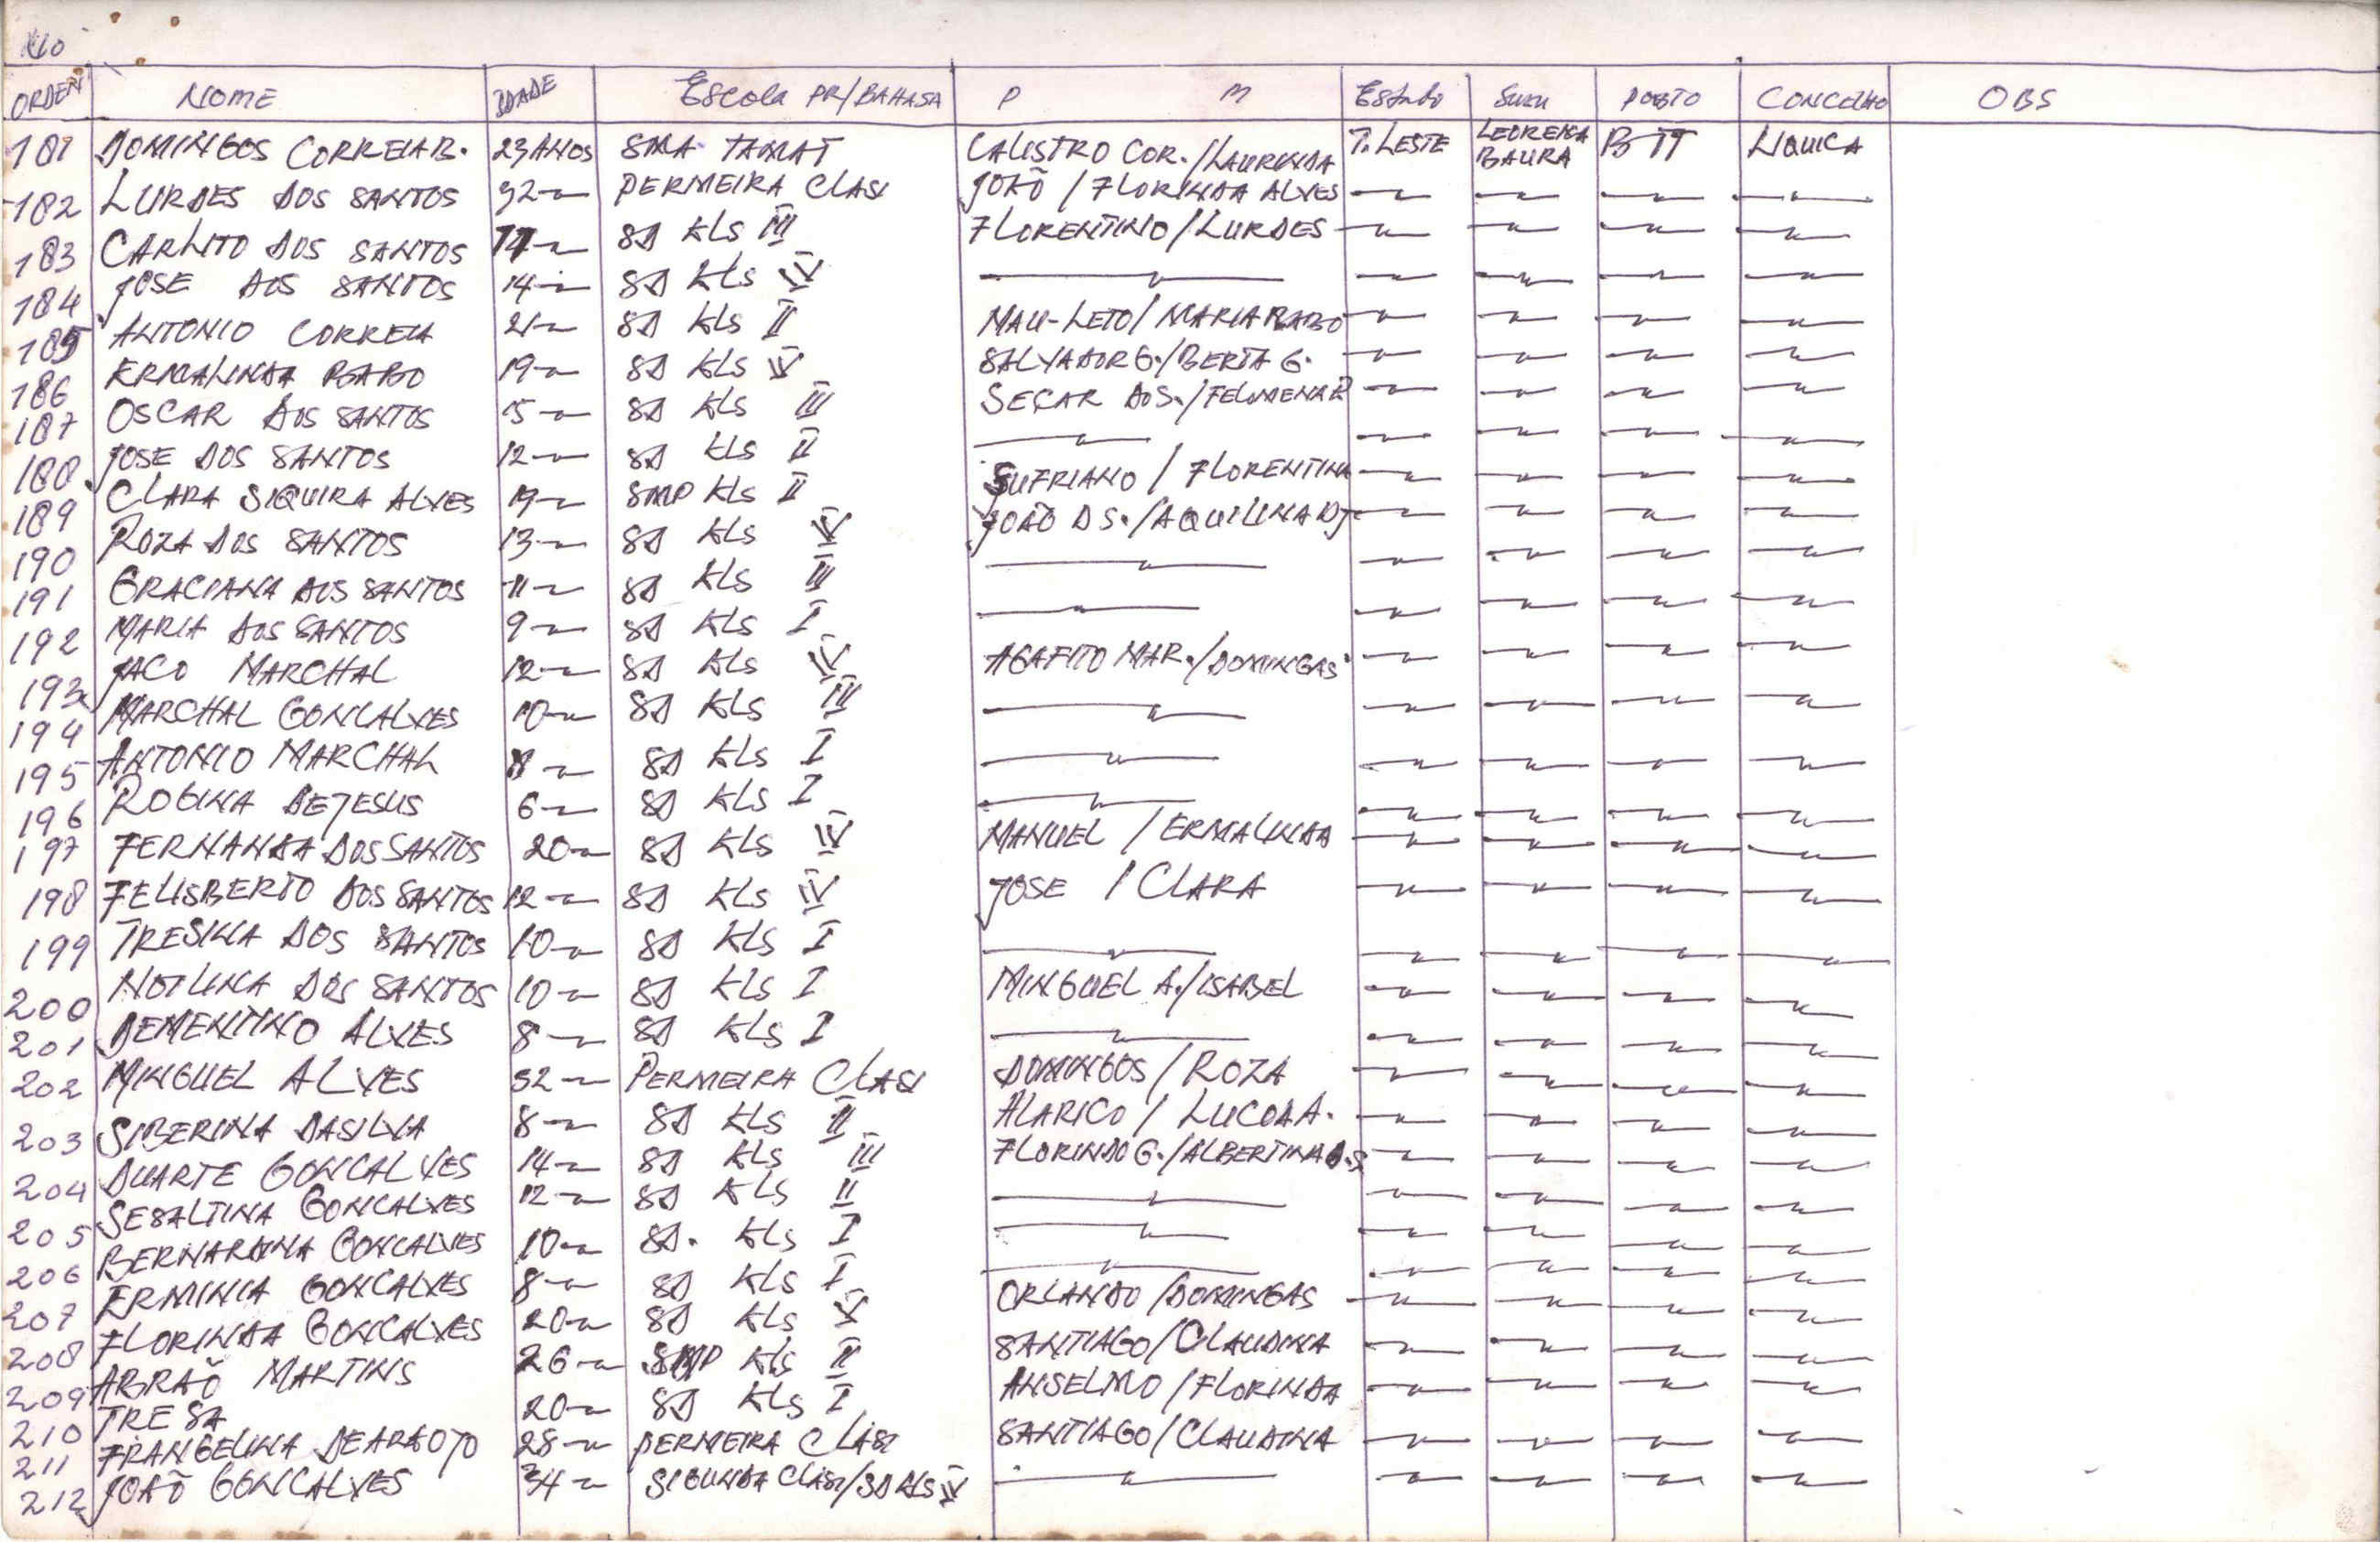 No
ORDEN NOME IDADE Escola PR/BAHASA P M Estado Suku POSTO CONCELHO OBS
181 DOMINGOS CORREIA B. 23 ANOS SMA TAMAT CALISTRO COR./LAURINDA T. LESTE BAURA BTT LIQUICA
182 LURDES DOS SANTOS 32 — " PERMEIRA CLASI JOAÕ / FLORINDA ALVES — " — " — " — "
183 CARLITO DOS SANTOS — " SD KLS III FLORENTINO/LURDES — " — " — " — "
184 JOSE DOS SANTOS 14 — " SD KLS IV — " — " — " — " — "
185 ANTONIO CORREIA 21 — " SD KLS II MAU-LETO/MARIA BABO — " — " — " — "
186 ERMALINDA BABO 19 — " SD KLS IV SALVADOR G./BERTA G. — " — " — " — "
187 OSCAR DOS SANTOS 15 — " SD KLS III SEÇAR DOS./FELOMENA R — " — " — " — "
188 JOSE DOS SANTOS 12 — " SD KLS II — " — " — " — " — "
189 CLARA SIQUIRA ALVES 19 — " SMP KLS II SUFRIANO / FLORENTINA — " — " — " — "
190 ROZA DOS SANTOS 13 — " SD KLS IV JOAÕ DS./AQUILINA DJ — " — " — " — "
191 GRACIANA DOS SANTOS 11 — " SD KLS III — " — " — " — " — "
192 MARIA DOS SANTOS 9 — " SD KLS I — " — " — " — " — "
193 JACO MARCHAL 12 — " SD KLS IV AGAFITO MAR./DOMINGAS — " — " — " — "
194 MARCHAL GONCALVES 10 — " SD KLS III — " — " — " — " — "
195 ANTONIO MARCHAL 8 — " SD KLS I — " — " — " — " — "
196 ROGINA DEJESUS 6 — " SD KLS I — " — " — " — " — "
197 FERNANDA DOS SANTOS 20 — " SD KLS IV MANUEL / ERMALINDA — " — " — " — "
198 FELISBERTO DOS SANTOS 12 — " SD KLS IV JOSE / CLARA — " — " — " — "
199 TRESINA DOS SANTOS 10 — " SD KLS I — " — " — " — " — "
200 NOTLINA DOS SANTOS 10 — " SD KLS I MINGUEL A./ISABEL — " — " — " — "
201 DEMENTINO ALVES 8 — " SD KLS I — " — " — " — " — "
202 MINGUEL ALVES 32 — " PERMEIRA CLASI DOMINGOS / ROZA — " — " — " — "
203 SIBERINA DASILVA 8 — " SD KLS II ALARICO / — " — " — " — "
204 DUARTE GONCALVES 14 — " SD KLS III FLORINDO G./ALBERTINA D.S — " — " — " — "
205 SEBALTINA GONCALVES 12 — " SD KLS II — " — " — " — " — "
206 BERNARDINA GONCALVES 10 — " SD. KLS I — " — " — " — " — "
207 ERMINIA GONCALVES 8 — " SD KLS I — " — " — " — " — "
208 FLORINDA GONCALVES 20 — " SD KLS V ORLANDO / DOMINGAS — " — " — " — "
209 ABRAÕ MARTINS 26 — " SMP KLS II SANTIAGO/CLAUDINA — " — " — " — "
210 TRESA 20 — " SD KLS I ANSELMO / FLORINDA — " — " — " — "
211 FRANGELINA DEARAOJO 28 — " PERMEIRA CLASI SANTIAGO/CLAUDINA — " — " — " — "
212 JOAÕ GONCALVES 34 — " SIGUNDA CLASI/SD KLS IV — " — " — " — " — "